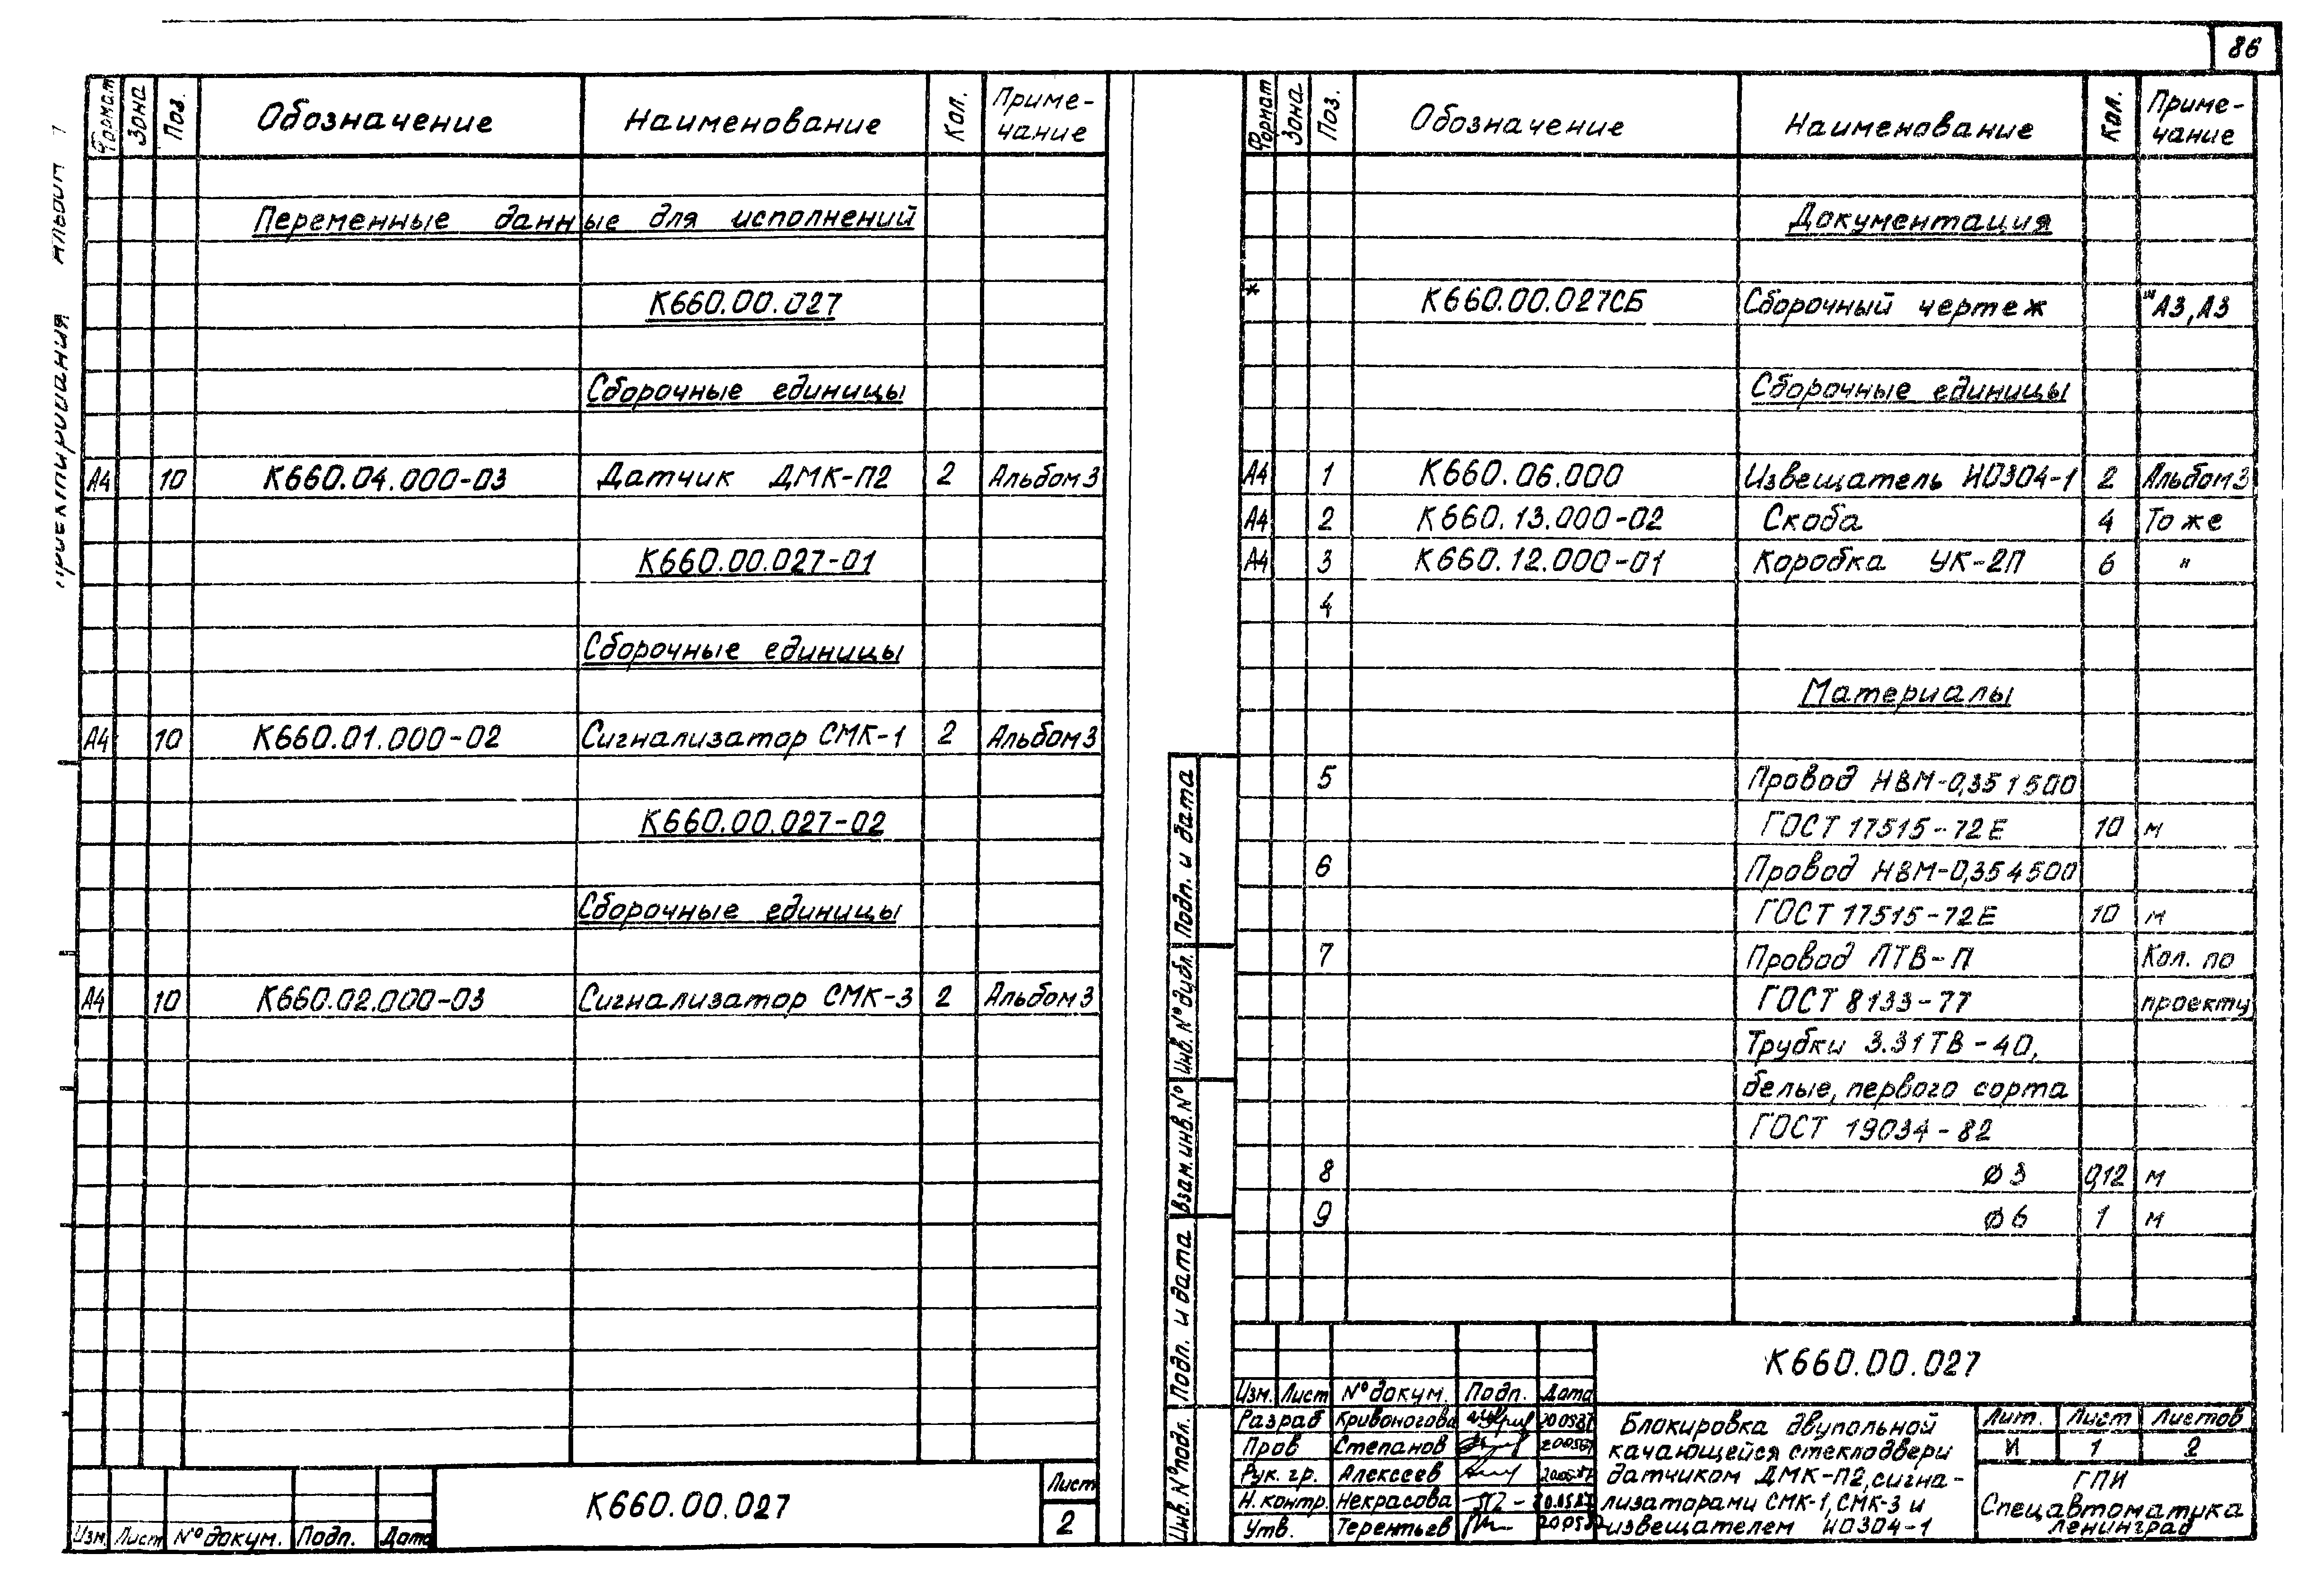 86
Альбом
проектирования
Формат Зона Поз. Обозначение Наименование Кол. Приме-
чание
Переменные данные для исполнений
К660.00.027
Сборочные единицы
А4 10 К660.04.000-03 Датчик ДМК-П2 2 Альбом 3
К660.00.027-01
Сборочные единицы
А4 10 К660.01.000-02 Сигнализатор СМК-1 2 Альбом 3
К660.00.027-02
Сборочные единицы
А4 10 К660.02.000-03 Сигнализатор СМК-3 2 Альбом 3
Изм. Лист № докум. Подп. Дата
К660.00.027
Лист
2
Формат Зона Поз. Обозначение Наименование Кол. Приме-
чание
Документация
* К660.00.027СБ Сборочный чертеж А3, А3
Сборочные единицы
А4 1 К660.06.000 Извещатель ИО304-1 2 Альбом 3
А4 2 К660.13.000-02 Скоба 4 То же
А4 3 К660.12.000-01 Коробка УК-2П 6 "
4
Материалы
5 Провод НВМ-0,35 1 500
ГОСТ 17515-72Е 10 м
6 Провод НВМ-0,35 4 500
ГОСТ 17515-72Е 10 м
7 Провод ЛТВ-П Кол. по
ГОСТ 8133-77 проекту
Трубки 3.31ТВ-40,
белые, первого сорта
ГОСТ 19034-82
8 Ø3 0,12 м
9 Ø6 1 м
Подп. и дата
Инв. № дубл.
Взам. инв. №
Подп. и дата
Инв. № подл.
К660.00.027
Изм. Лист № докум. Подп. Дата
Разраб Кривоногова
Пров Степанов
Рук. гр. Алексеев
Н. контр. Некрасова
Утв. Терентьев
Блокировка двупольной
качающейся стеклодвери
датчиком ДМК-П2, сигна-
лизаторами СМК-1, СМК-3 и
извещателем ИО304-1
Лит. Лист Листов
И 1 2
ГПИ
Спецавтоматика
Ленинград